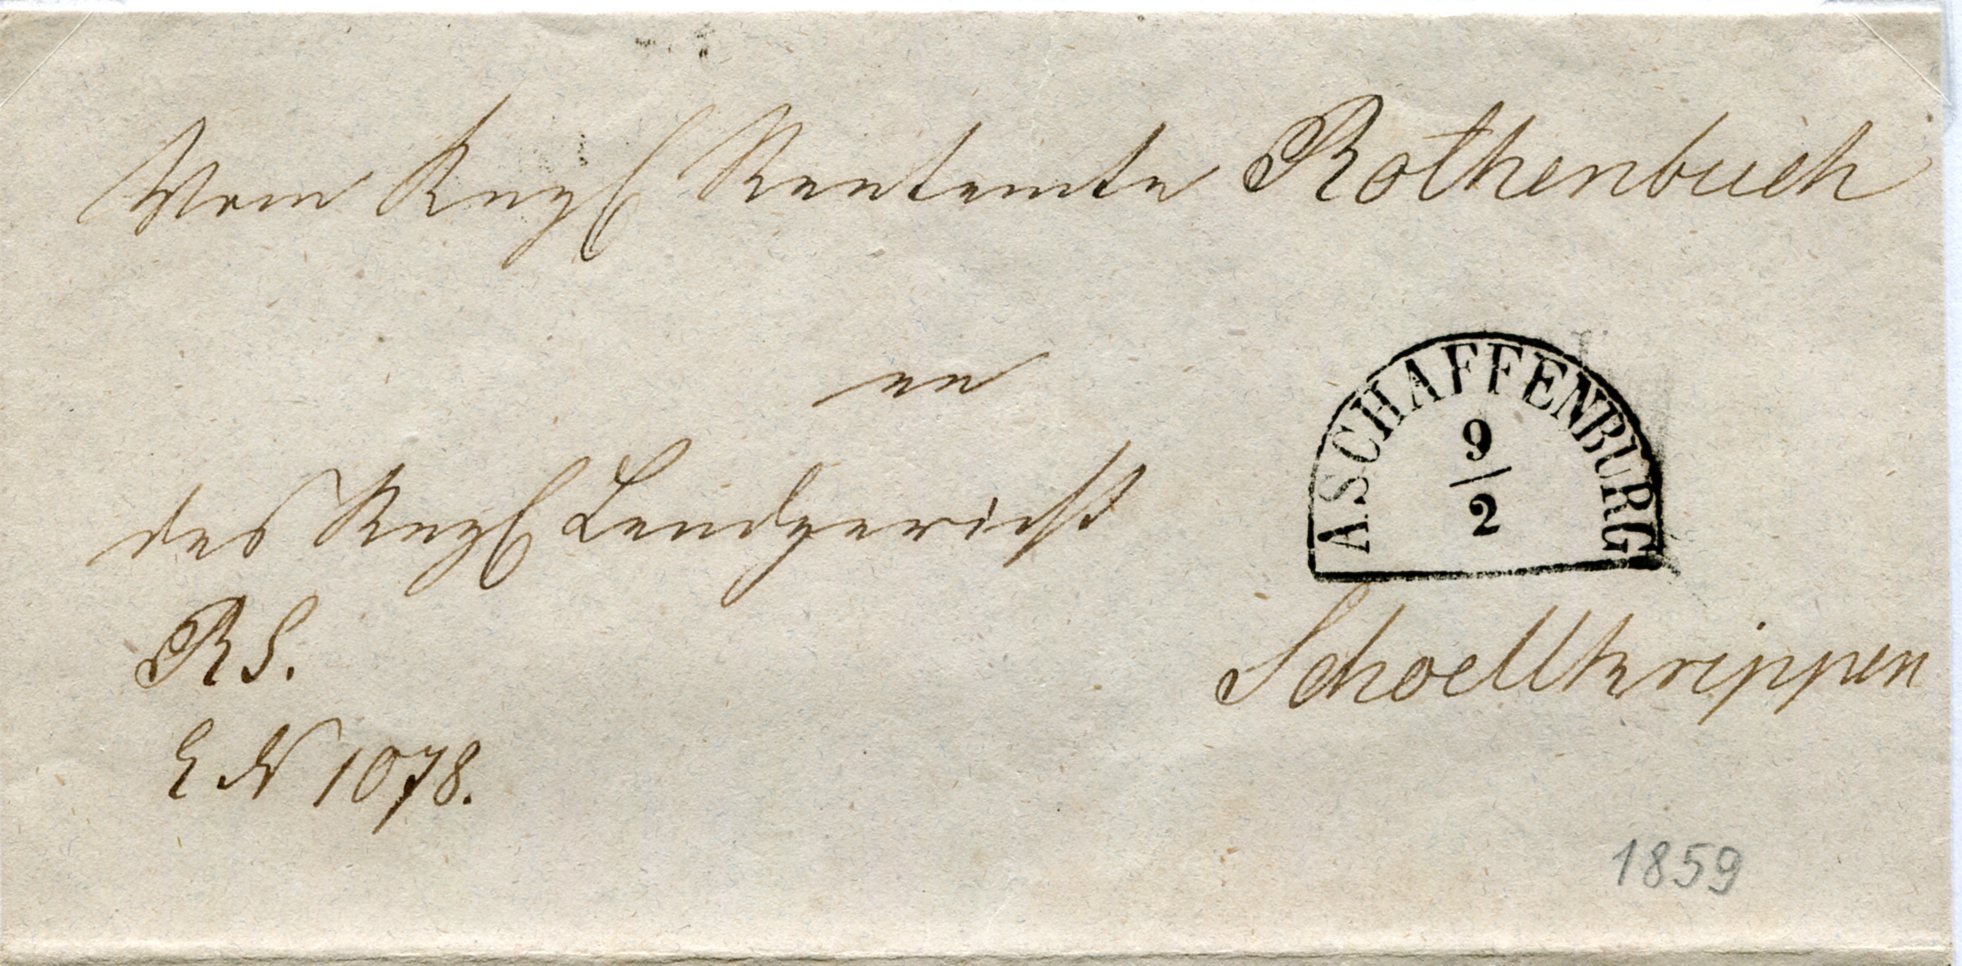 Vom Kngl Rentamte Rothenbuch
an
das Kngl Landgericht
ASCHAFFENBURG
9/2
Schoellkrippen
RS.
E. N 1078.
1859